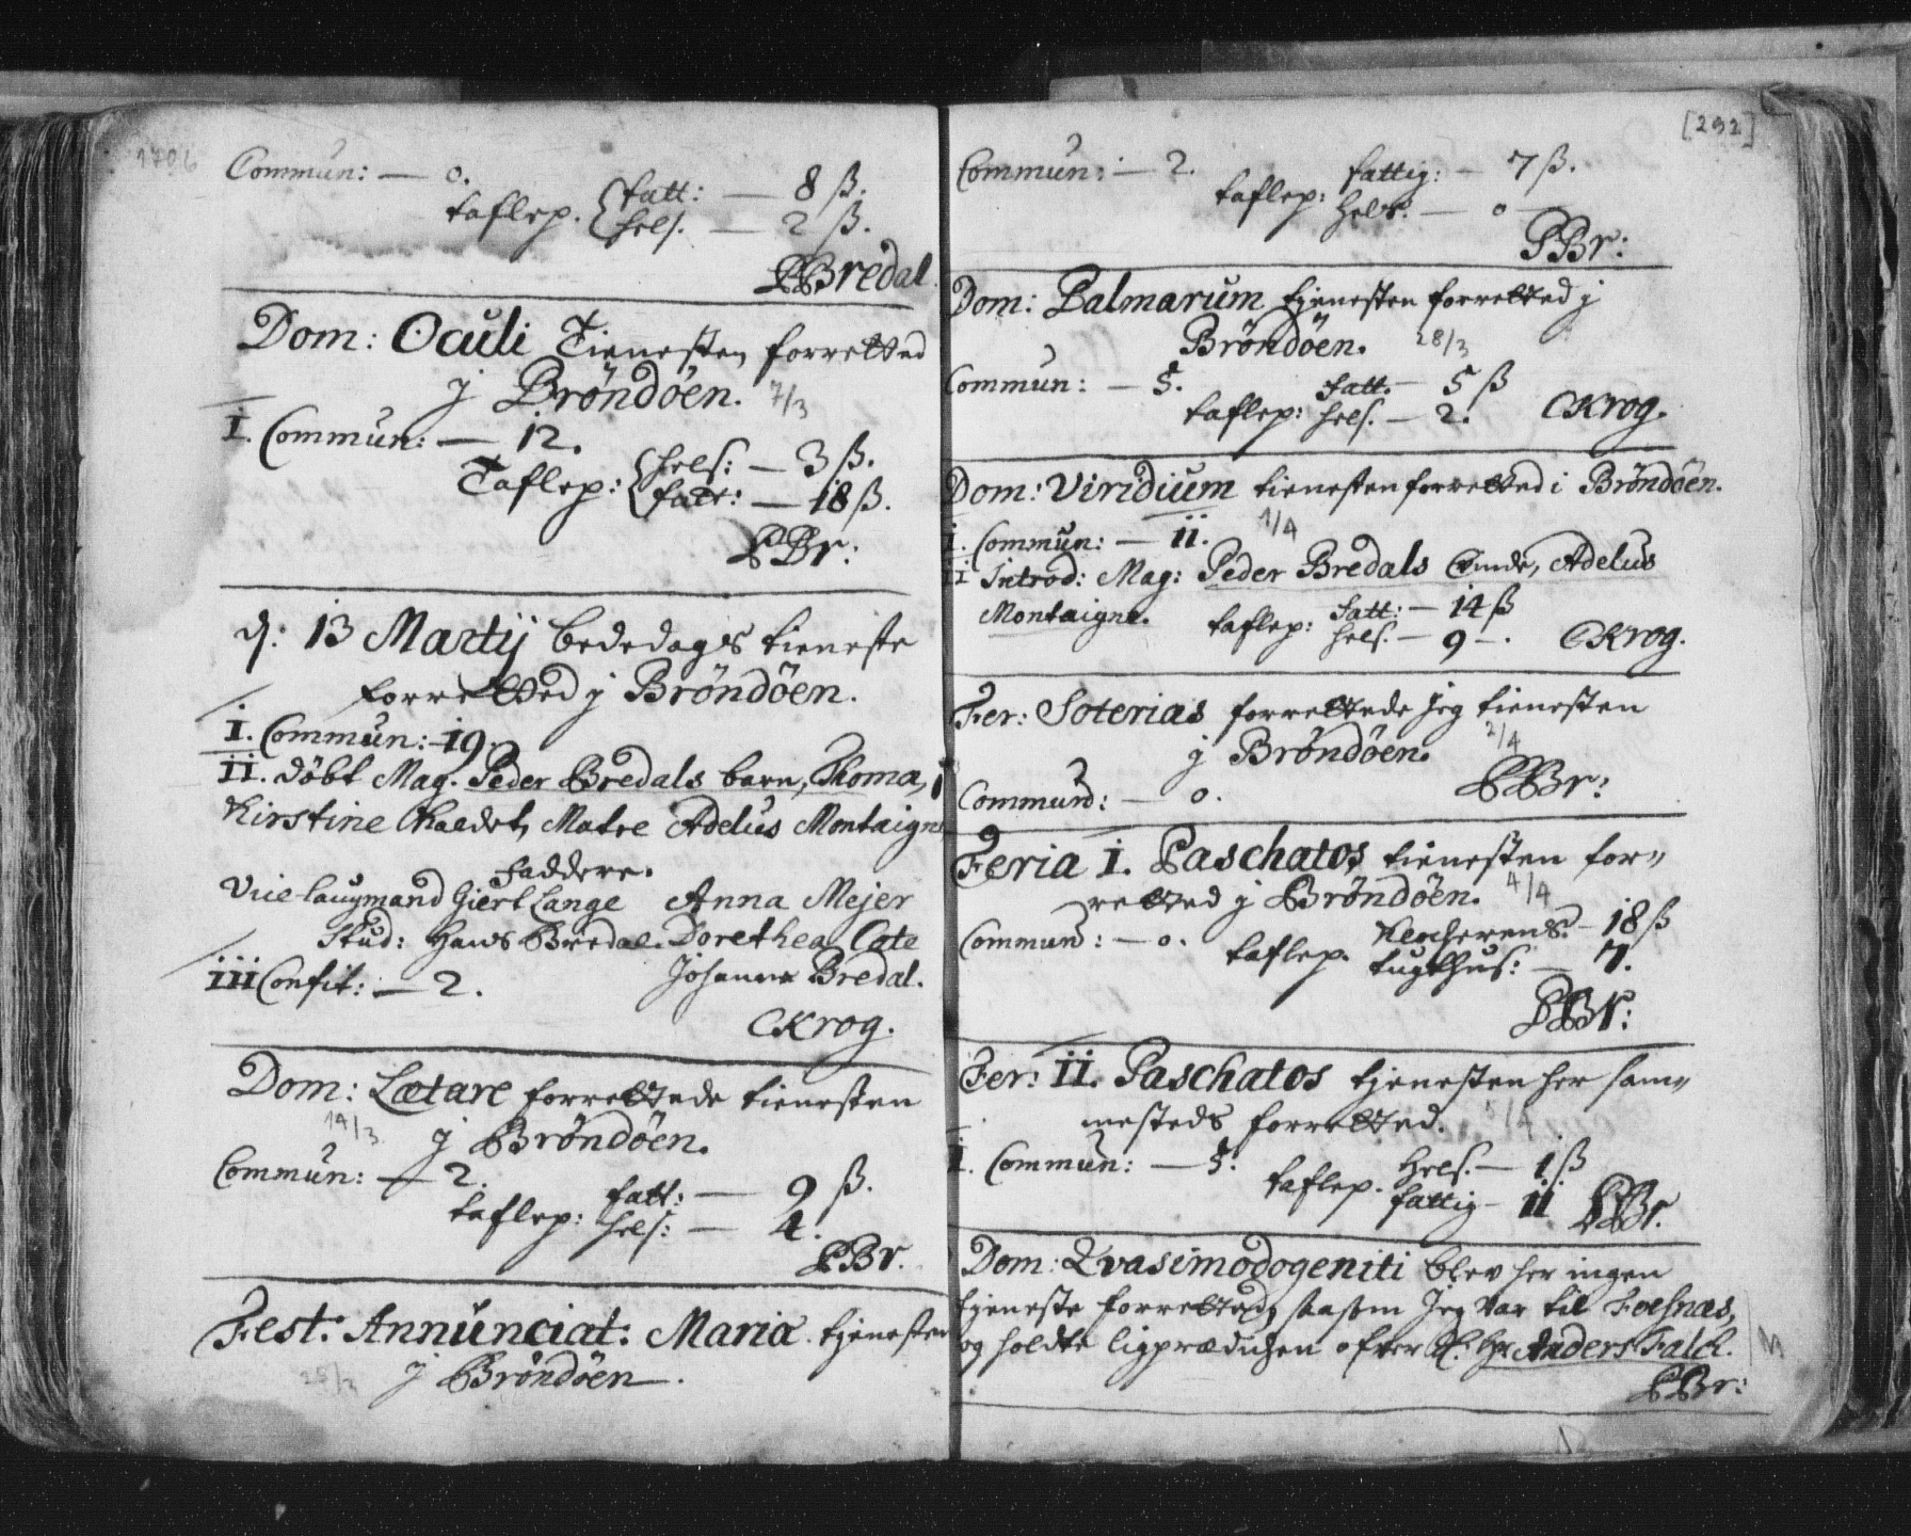 1706
Commun: — 0.
taflep. { fatt: — 8 ß.
hels. — 2 ß.
PBredal
Dom: Oculi Tienesten forretted
j Bröndöen. 7/3
I. Commun: — 12.
Taflep: { hels: — 3 ß.
fatt: — 18 ß.
PBr:
d: 13 Martij bededags tieneste
forretted j Bröndöen.
I. Commun: 19.
II. döbt Mag. Peder Bredals barn, Thoma,
Kirstine Kaldet, Matre Adelus Montaigne
Faddere.
Vice laugmand Giert Lange Anna Mejer
Stud: Hans Bredal. Dorethea Cate
III Confit: — 2. Johanna Bredal.
CKrog.
Dom: Lætare forrettede tienesten
14/3 j Bröndöen.
Commun: — 2.
taflep: fatt: — 9 ß.
hels: — 4.
PBr.
Fest: Annunciat: Mariæ tjenesten
25/3 j Bröndöen.
[292]
Commun: — 2.
taflep: fattig: — 7 ß.
Hels: — 0
PBr:
Dom: Palmarum tjenesten forretted j
Bröndöen. 28/3
Commun: — 5.
taflep: fatt. — 5 ß
hels. — 2. CKrog.
Dom: Viridium tienesten forretted i Bröndöen.
I. Commun: — 11. 1/4
II Introd: Mag: Peder Bredals Qvinde, Adelus
Montaigne. taflep: fatt: — 14 ß
hels. — 9 —. CKrog.
Fer: Soterias forrettede jeg tienesten
j Bröndöen. 2/4
Commun: — 0. PBr:
Feria I. Paschatos tienesten for„
retted j Bröndöen. 4/4
Commun: — 0. taflep. Klocherens. — 18 ß
tugthus: — 7.
PBr:
Fer: II. Paschatos tjenesten her sam„
mesteds forretted. 5/4
I. Commun: — 5.
taflep. Hels. — 1 ß
fattig — 11 PBr.
Dom: Qvasimodogeniti blev her ingen
tjeneste forretted, saasom jeg var til Foesnæs,
og holdte ligprædichen ofver Sl. Hr. Anders Falck.
PBr: